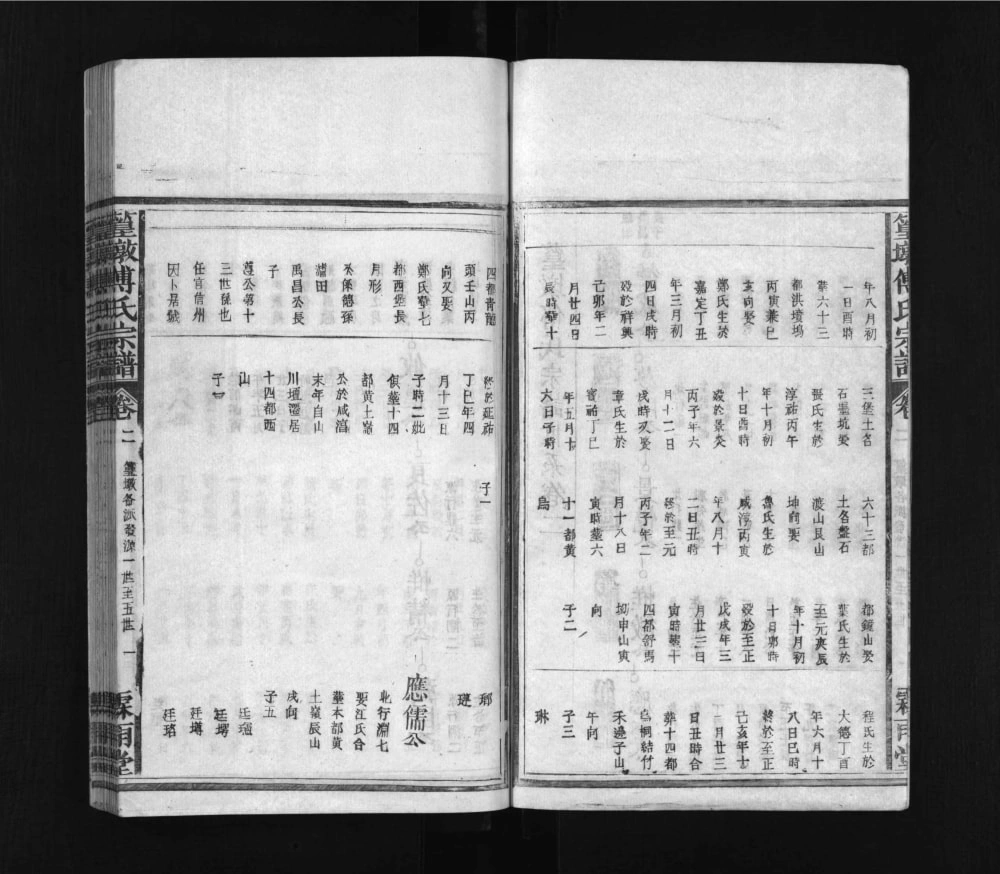 篁墩傅氏宗譜
卷
年八月初
一日酉時
葬六十三
都洪墳塢
丙寅兼巳
亥向娶
鄭氏生於
嘉定丁丑
年三月初
四日戌時
歿於祥興
己卯年二
月廿四日
辰時葬十
三堡土名
石墨坑娶
張氏生於
淳祐丙午
年十月初
十日酉時
歿於景炎
丙子年六
月十二日
戌時又娶
章氏生於
寶祐丁巳
年五月十
六日子時
六十三都
土名盤石
渡山艮山
坤向娶
詹氏生於
咸淳丙寅
年八月十
二日丑時
歿於至元
丙子年二
月十八日
寅時葬六
十一都黃
烏
都鏡山娶
葉氏生於
至元庚辰
年十月初
十日卯時
歿於至正
戊戌年三
月廿三日
寅時葬十
四都舒馬
坳申山寅
向
子二
程氏生於
大德丁酉
年六月十
八日巳時
終於至正
己亥年十
二月廿三
日丑時合
葬十四都
烏桐結竹
禾邊子山
午向
子三
琳
霖雨堂
四都青龍
頭壬山丙
向又娶
鄭氏葬七
都西堡長
月形
公係德孫
瑞田
禹昌公長
子
遵公第十
三世孫也
任官信州
因卜居饒
歿於延祐
丁巳年四
月十三日
子時二妣
俱葬十四
都黃土嶺
公於咸淳
末年自山
川壇遷居
十四都西
山
子四
子一
瑯
璉
應儒公
兆行淵七
娶江氏合
葬本都黃
土嶺辰山
戌向
子五
廷瑞
廷瑪
廷璹
廷珀
篁墩傅氏宗譜
卷二
篁墩各派發源一世至五世
一
霖雨堂